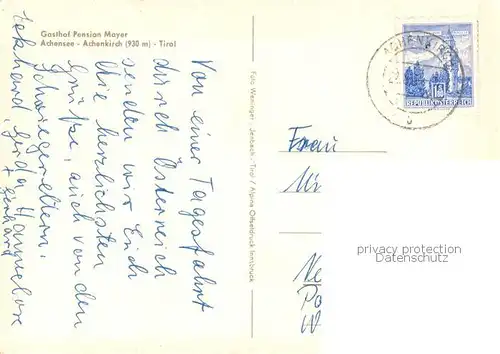 Gasthof Pension Mayer
Achensee - Achenkirch (930 m) - Tirol
Von einer Tagesfahrt
durch Österreich
senden wir Euch
die herzlichsten
Grüße, auch von den
Schwiegereltern.
Ekkhard, Gerda, Hannelore
+ Gerhard
Foto Weninger - Jenbach - Tirol / Alpine Offsetdruck Innsbruck
ACHENKIRCH
REPUBLIK ÖSTERREICH
Frau
privacy protection
Datenschutz